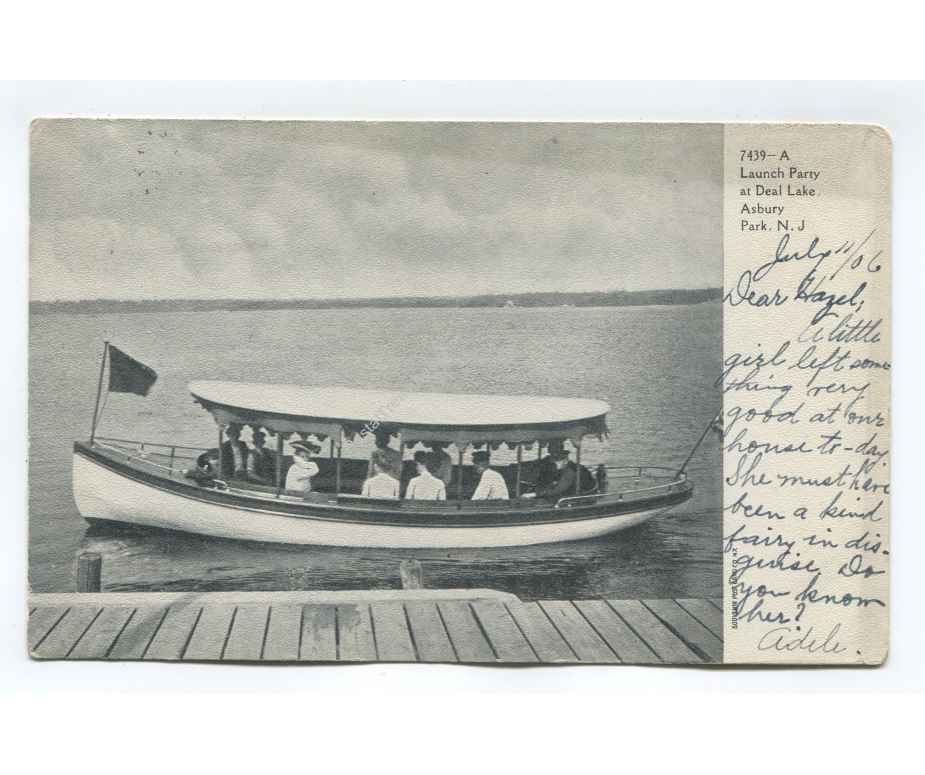 7439—A
Launch Party
at Deal Lake.
Asbury
Park, N. J
July 11/06
Dear Hazel,
A little
girl left some
thing very
good at our
house to-day
She must have
been a kind
fairy in dis-
guise. Do
you know
her?
Adele.